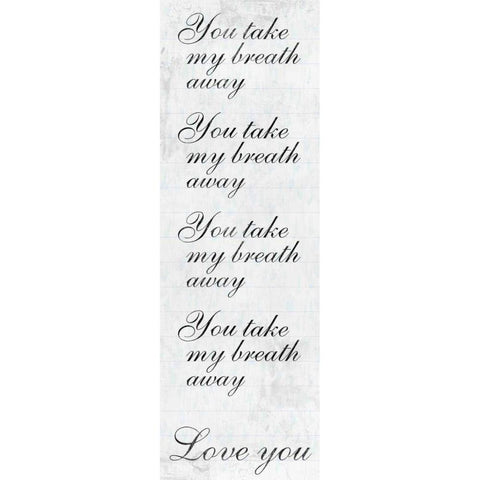 You take
my breath
away
You take
my breath
away
You take
my breath
away
You take
my breath
away
Love you